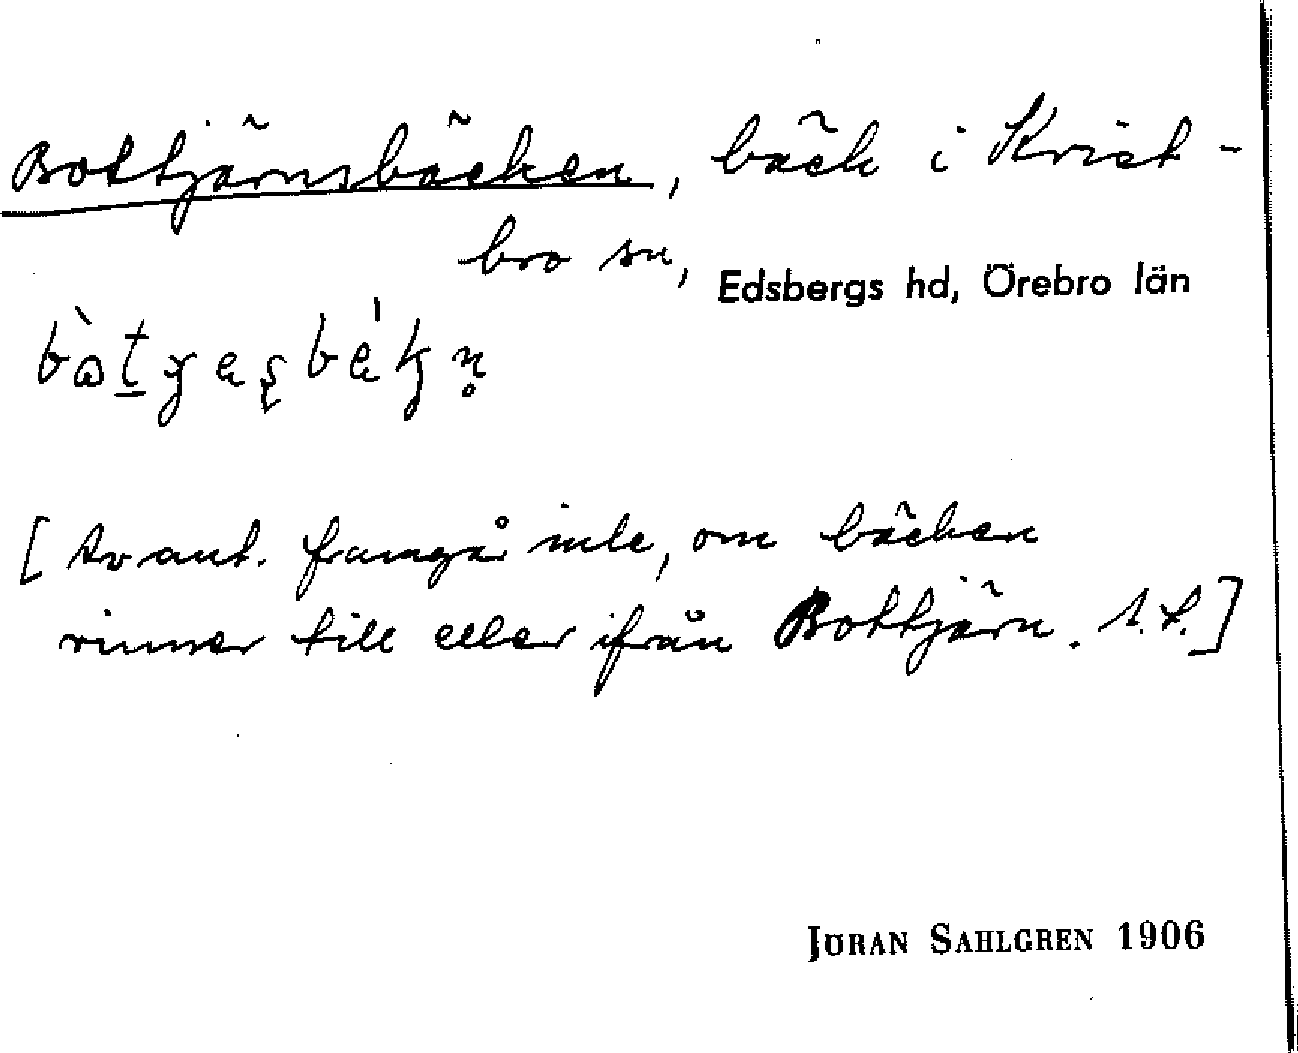 Bottjärnsbäcken, bäck i Krist-
bro sn, Edsbergs hd, Örebro län
[Av ant. framgår inte, om bäcken
rinner till eller ifrån Bottjärn. A.L.]
JÖRAN SAHLGREN 1906